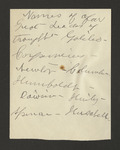 Names of our
great leaders of
thought Galileo
Copernicus
Newton Columbus
Humboldt
Darwin Huxley
Spencer